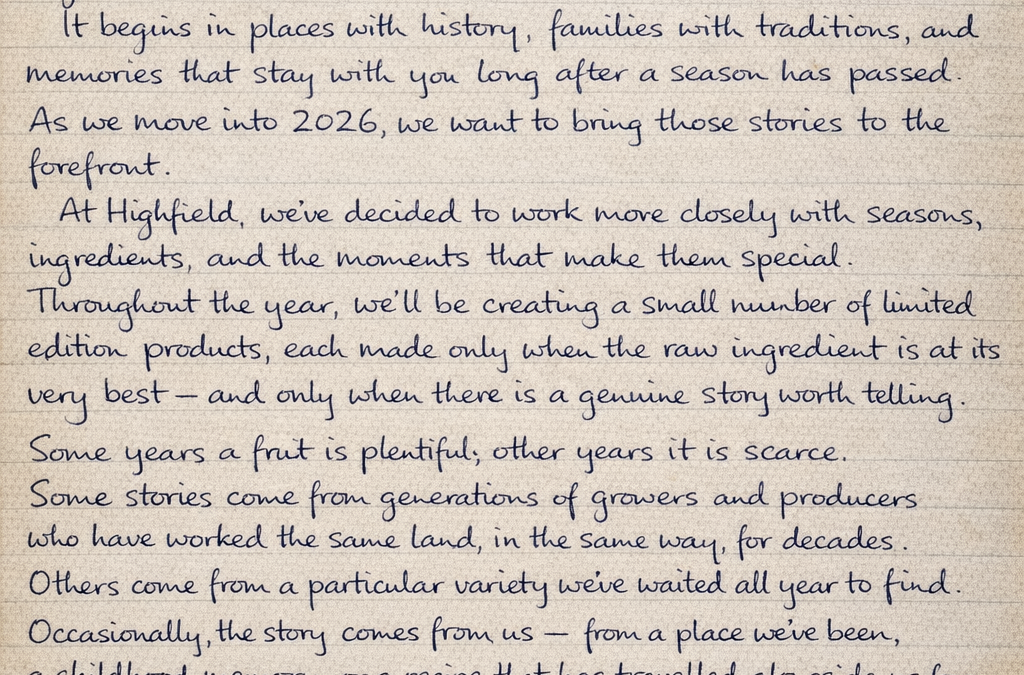 It begins in places with history, families with traditions, and
memories that stay with you long after a season has passed.
As we move into 2026, we want to bring those stories to the
forefront.
At Highfield, we've decided to work more closely with seasons,
ingredients, and the moments that make them special.
Throughout the year, we'll be creating a small number of limited
edition products, each made only when the raw ingredient is at its
very best — and only when there is a genuine story worth telling.
Some years a fruit is plentiful; other years it is scarce.
Some stories come from generations of growers and producers
who have worked the same land, in the same way, for decades.
Others come from a particular variety we've waited all year to find.
Occasionally, the story comes from us — from a place we've been,